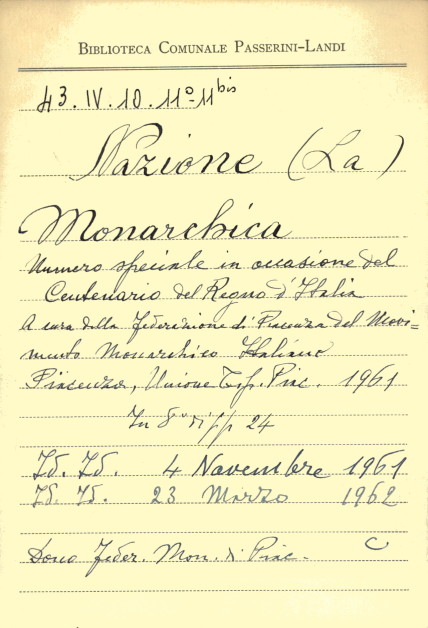 BIBLIOTECA COMUNALE PASSERINI-LANDI
43. IV. 10. 11°-11bis
Nazione (La)
Monarchica
Numero speciale in occasione del
Centenario del Regno d'Italia
A cura della Federazione di Piacenza del Movi=
mento Monarchico Italiano
Piacenza, Unione Tip. Piac. 1961
In 8° di pp 24
Id. Id. 4 Novembre 1961
Id. Id. 23 Marzo 1962
Dono Feder. Mon. di Piac. C